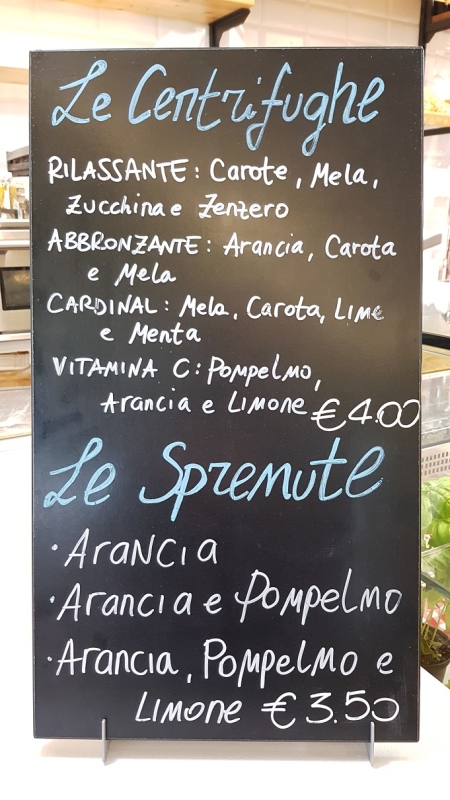 Le Centrifughe
RILASSANTE: Carote, Mela,
Zucchina e Zenzero
ABBRONZANTE: Arancia, Carota
e Mela
CARDINAL: Mela, Carota, Lime
e Menta
VITAMINA C: Pompelmo,
Arancia e Limone €4.00
Le Spremute
• Arancia
• Arancia e Pompelmo
• Arancia, Pompelmo e
Limone €3.50